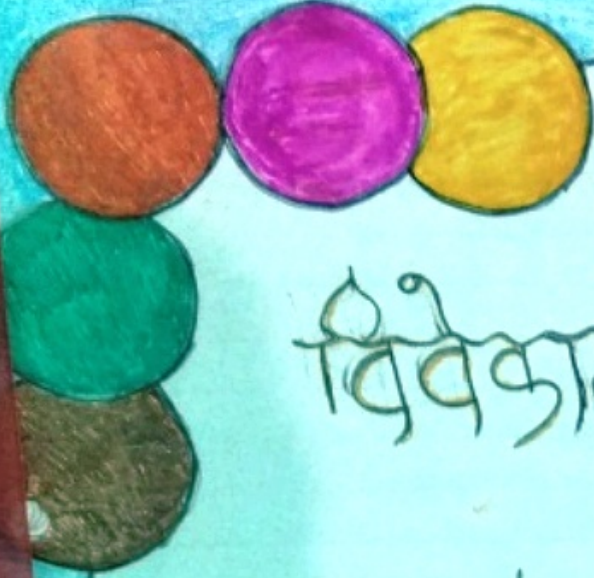 विवेका